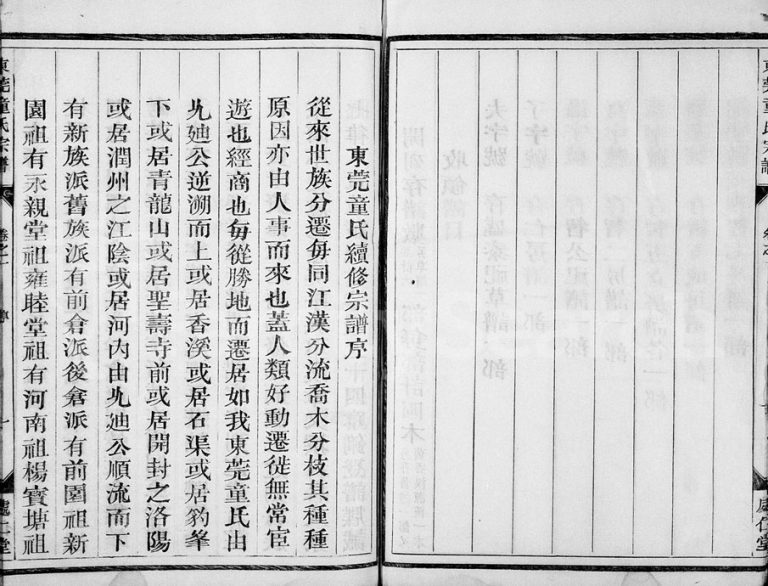 東莞童氏宗譜
東莞童氏續修宗譜序
從來世族分遷每同江漢分流喬木分枝其種種
原因亦由人事而來也蓋人類好動遷徙無常宦
遊也經商也每從勝地而遷居如我東莞童氏由
廸公逆溯而上或居香溪或居石渠或居豹峯
下或居青龍山或居聖壽寺前或居開封之洛陽
或居潤州之江陰或居河內由廸公順流而下
有新族派舊族派有前倉派後倉派有前園祖新
園祖有永親堂祖雍睦堂祖有河南祖楊寶塘祖
東莞童氏宗譜
卷之一
序
一